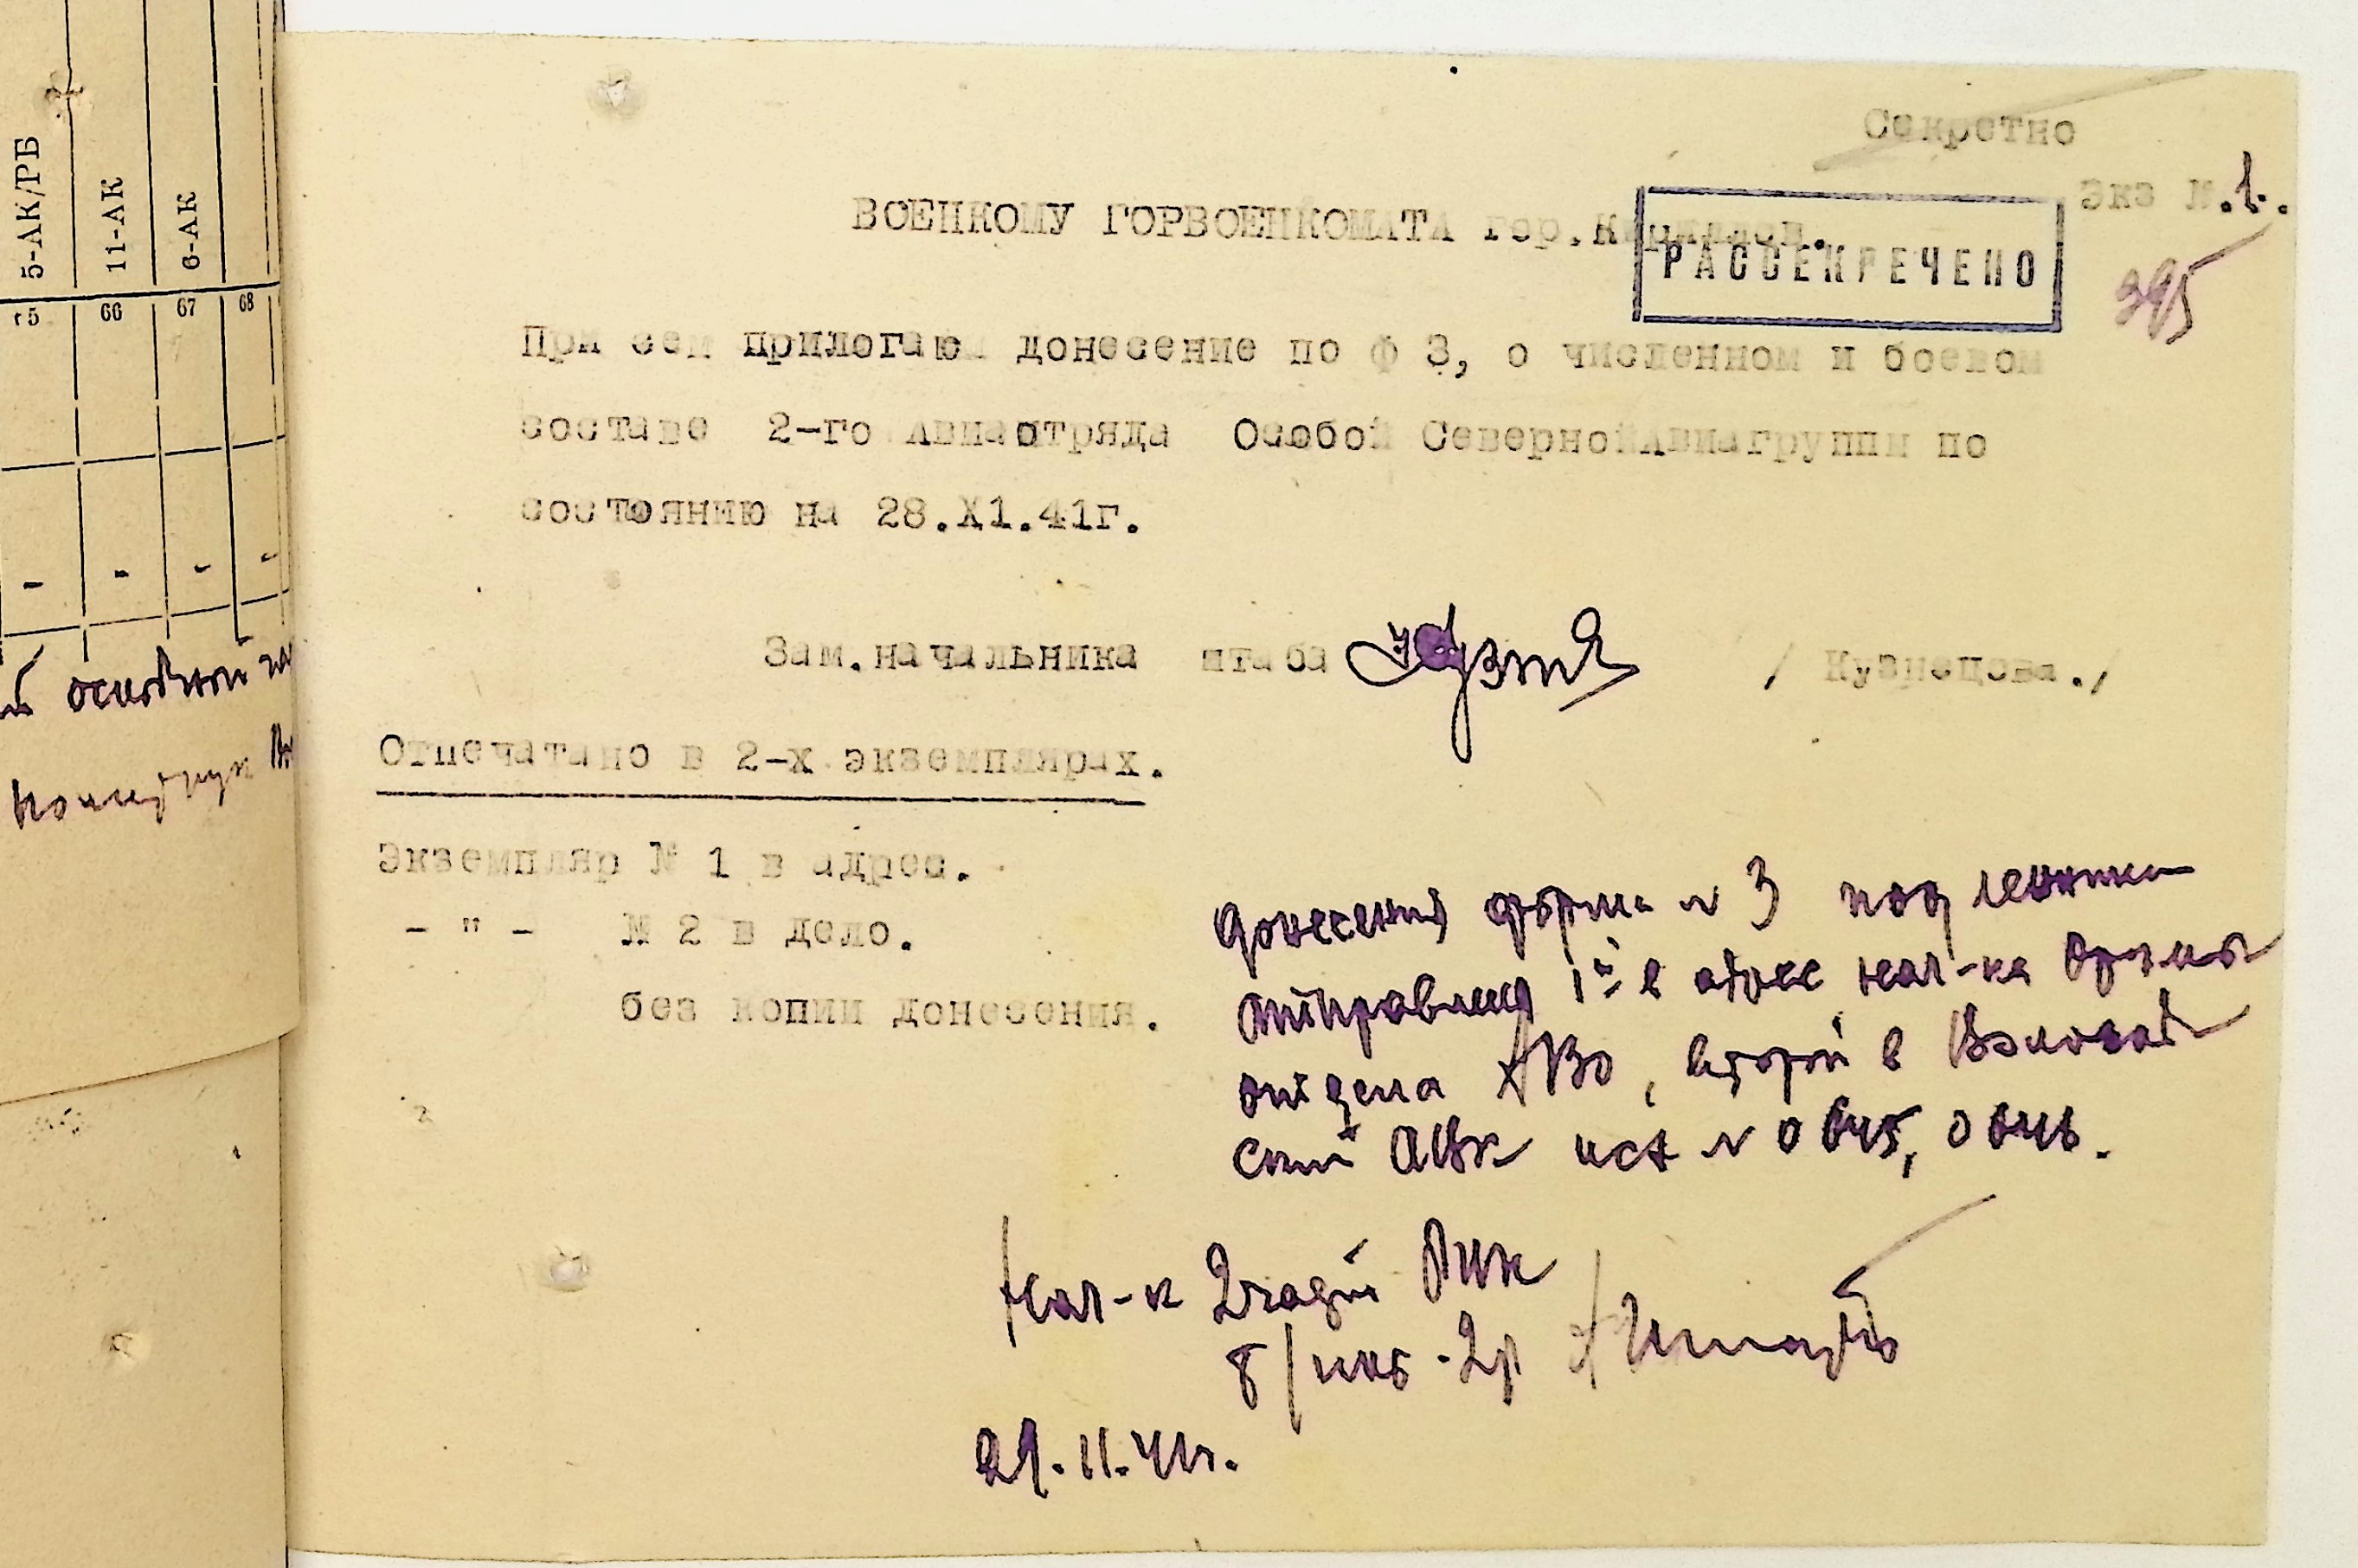 5-АК/РБ
11-АК
6-АК
66
67
68
основной
Секретно
Экз №.1.
ВОЕНКОМУ ГОРВОЕНКОМАТА гор.
РАССЕКРЕЧЕНО
395
При сем прилогаю донесение по Ф 3, о численном и боевом
составе 2-го Авиаотряда Особой СевернойАвиагруппы по
состоянию на 28.Х1.41г.
Зам.начальника штаба / Кузнецова./
Отпечатано в 2-х экземплярах.
Экземпляр № 1 в адрес.
- " - № 2 в дело.
без копии донесения.
Донесения форма № 3 подлинник
отправлен 1й в адрес нач-ка
отдела АВО, второй в
ский исх № 0645, 0646.
Нач-к 2 части РВК
29.11.41г.